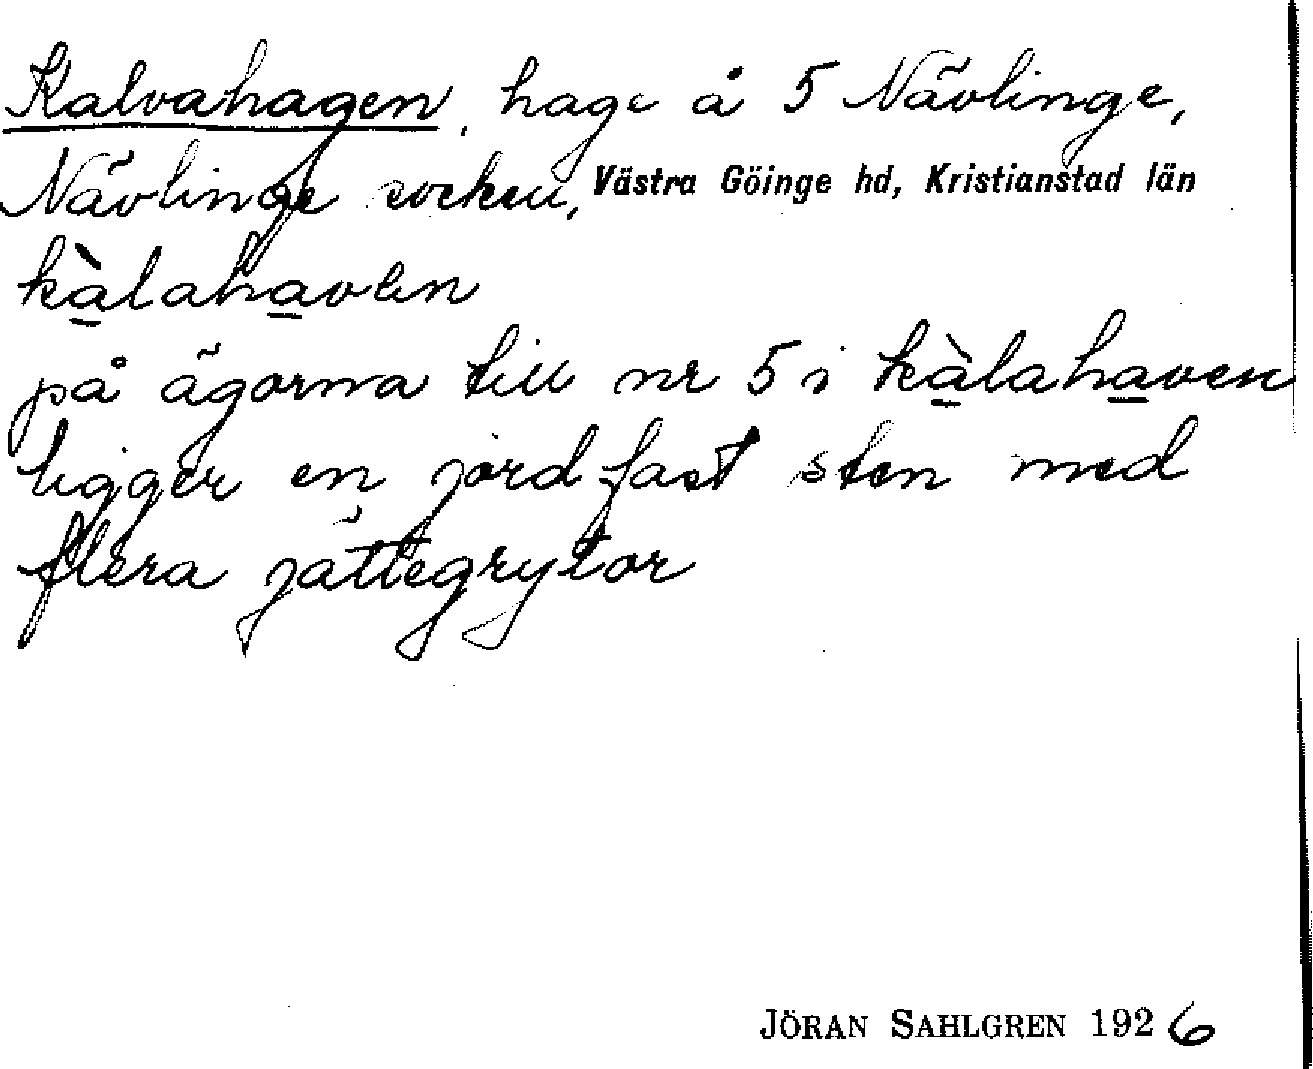 Kalvahagen, hage å 5 Nävlinge,
Nävlinge socken, Västra Göinge hd, Kristianstad län
kàlahavan
på ägorna till nr 5 i kàlahaven
ligger en jordfast sten med
flera jättegrytor
JÖRAN SAHLGREN 1926